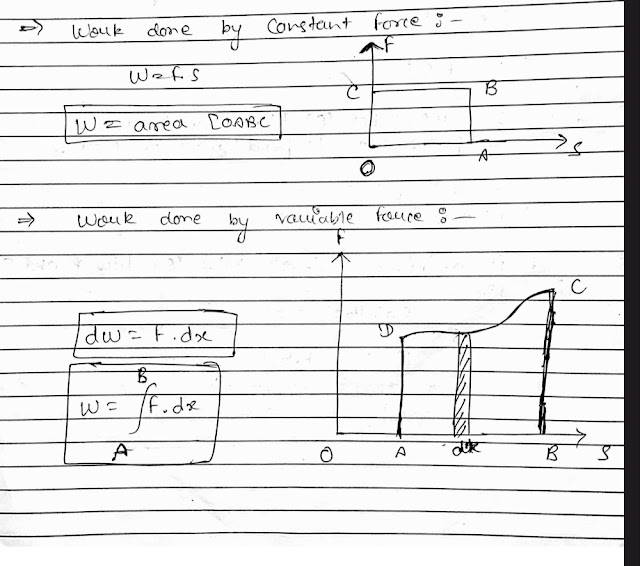 ⇒ Work done by Constant force :-
F
W = f.s
C B
W = area [OABC
O A S
⇒ Work done by variable force :-
F
C
D
dw = f.dx
B
W = ∫f.dx
A
O A dx B S